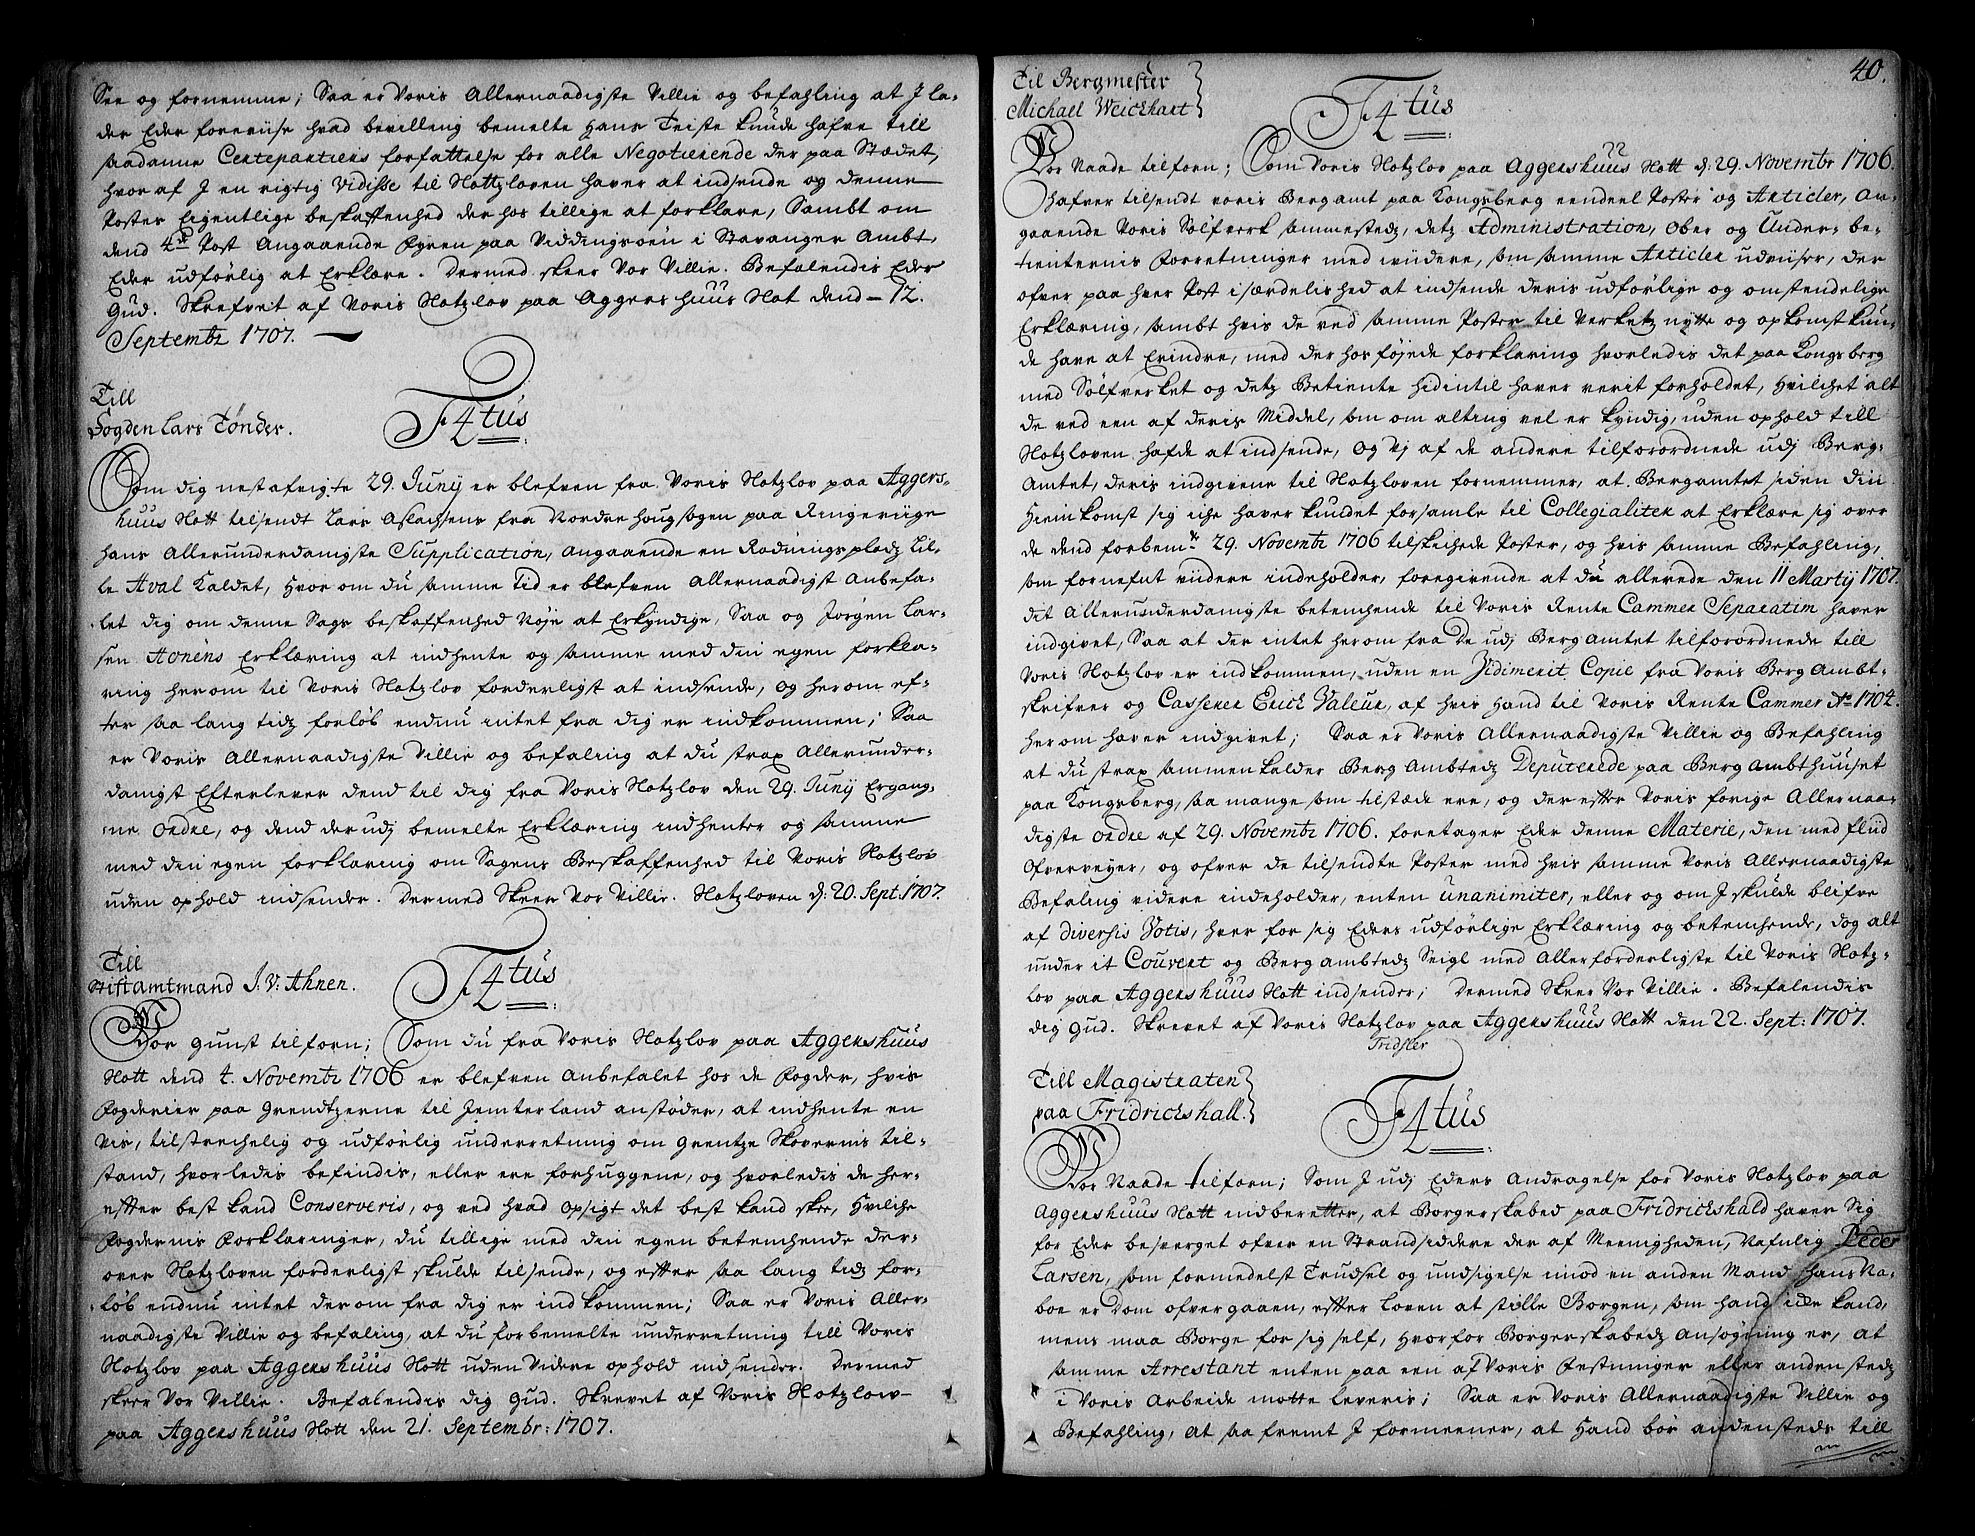 See og fornemme; Saa er Voris Allernaadigste Villie og befahling at J la-
der Eder foreviise hvad bevilling bemelte Hans Teiste kunde hafve till
saadanne Certepartiers forfattelse for alle Negotierende der paa Stædet,
hvor af J en rigtig Vidisse til Slottzloven haver at indsende og denne
Postes Eigentlige beskaffenhed der hos tillige at forklare, Sambt om
dend 4de Post Angaaende Fyren paa Viddingsøen i Stavanger Ambt,
Eder udførlig at Erklære. Dermed skeer Vor Villie. Befalendis Eder
Gud. Skrefvet af Voris Slotzlov paa Aggers huus Slot dend - 12.
Septembr 1707.
Till
Fogden Lars Tønder.
F4tus
Som dig nest afvigte 29. Junij er blefven fra Voris Slotzlov paa Aggers-
huus Slott tilsendt Lars Aslachsens fra Nordrehougsogen paa Ringeriige
hans Allerunderdanigste Supplication, angaaende en Rødnings pladz Lil-
le Aval kaldet, Hvor om du samme Tid er blefven Allernaadigst Anbefa-
let dig om denne Sags beskaffenhed Nøje at Erkyndige, Saa og Jørgen Lar-
sen Hønens Erklæring at indhente og samme med din egen forkla-
ring herom til Voris Slotzlov forderligst at indsende, og herom ef-
ter saa lang tidz forløb endnu intet fra dig er indkommen; Saa
er Voris Allernaadigste Villie og befaling at du strax Allerunder-
danigst Efterlever dend til dig fra Voris Slotzlov den 29. Junij Ergang-
ne ordre, og dend derudj bemelte Erklæring indhenter og samme
med din egen forklaring om Sagens Beskaffenhed til Voris Slotzlov
uden ophold indsender. Dermed Skeer Vor Villie. Slotzloven d: 20. Sept. 1707.
Till
Stiftamtmand J. V: Ahnen.
F4tus
Vor gunst tilforn; Som du fra Voris Slotzlov paa Aggershuus
Slott dend 4. Novembr 1706 er blefven Anbefalet hos de Fogder, hvis
Fogderier paa Grendtzerne til Jemterland anstøder, at indhente en
vis, tilstrechelig og udførlig underretning om Grentze Skovernis til-
stand, hvorledis befindis, eller ere forhuggene, og hvorledis de her-
efter best kand Conserveris, og ved hvad opsigt det best kand skee, Hvilche
Fogdernis Forklaringer, du tillige med din egen betenchende der-
over Slotzloven forderligst skulde tilsende, og efter saa lang tidz for-
løb endnu intet derom fra dig er indkommen; Saa er Voris Aller-
naadigste Villie og befaling, at du forbemelte underretning till Voris
Slotzlov paa Aggershuus Slott uden Videre ophold indsender. Dermed
skeer Vor Villie. Befalendis dig Gud. Skrevet af Voris Slotzlow
paa Aggershuus Slott den 21. Septembr: 1707.
40.
Til Bergmester
Michael Weichhart
F4tus
Vor Naade tilforn; Som Voris Slotzlov paa Aggershuus Slott d: 29. Novembr 1706.
hafver tilsendt voris Bergamt paa Kongsberg eendeel Poster og Articler, an-
gaaende Voris Sølfverk sammestedz, detz Administration, Ober og Under-be-
tienternis Forretninger med viidere, som samme Articler udviiser, der
ofver paa hver Post i særdelished at indsende deris udførlige og omstendelige
Erklæring, sambt hvis de ved samme Poster til Verketz nytte og opkomst kun-
de have at Erindre, med der hos føjede forklaring hvorledis det paa Kongsberg
med Sølfverket og detz Betiente hidintil haver verit forholdet, Hvilchet alt
de ved een af deris Middel, som om alting vel er kyndig, uden ophold till
Slotzloven hafde at indsende, Og Vj af de andere tilforordnede udj Berg-
Amtet, deris indgivene til Slotzloven fornemmer, at Bergamtet siden din
Hieimkomst sig iche haver kundet forsamle til Collegialiter at Erklære sig over
de dend forbemte 29. Novembr 1706 tilskichede Poster, og hvis samme Befahling,
som fornefnt viidere indeholder, foregivende at du allerede den 11 Martij 1707.
dit Allerunderdanigste betenchende til Voris Rente Cammer Separatim haver
indgivet, Saa at der intet herom fra De udj Bergamtet tilforordnede till
Voris Slotzlov er indkommen, uden en Vidimerit Copie fra Voris Berg Ambt-
skrifver og Casserer Erich Valeur, af hvis Hand til Voris Rente Cammer Ao 1704.
herom haver indgivet; Saa er Voris Allernaadigste Villie og Befahling
at du strax sammenkalder Berg Ambtedz Deputerede paa Berg Ambthuuset
paa Kongsberg, saa mange som tilstæde ere, og derefter Voris forige Allernaa-
digste ordre af 29. Novembr 1706. foretager Eder denne Materie, den med fliid
Ofverveyer, og ofver de tilsendte Poster med hvis samme Voris Allernaadigste
Befaling videre indeholder, enten unanimiter, eller og om J skulde blifve
af diversis Votis, hver for sig Eders udførlige Erklæring og betenchende, dog alt
under it Couvert og Berg ambtedz Seigl med Allerforderligste til Voris Slotz-
lov paa Aggershuus Slott indsender; Dermed Skeer Vor Villie. Befalendis
dig Gud. Skrevet af Voris Slotzlov paa Aggershuus Slott den 22. Sept: 1707.
Till Magistraten
paa Fridrichshall.
F4tus
Vor Naade tilforn; Som J udj Eders Andragelse for Voris Slotzlov paa
Aggershuus Slott indberetter, at Borgerskabed paa Fridrichshald haver Sig
for Eder besverget ofver en Strandsiddere der af Meenigheden, Nafnlig Peder
Larsen, som formedelst Trudsel og undsigelse imod en anden Mand hans Na-
boe er Dom ofvergaaen, efter Loven at stille Borgen, som hand icke kand,
mens maa Borge for sig self, Hvorfor Borgerskabedz Ansøgning er, at
samme Arrestant enten paa een af Voris Festninger eller andenstedz
i Voris Arbeide motte leveris; Saa er Voris Allernaadigste Villie og
Befahling, at saa fremt J formeener, at Hand bør andensteds till